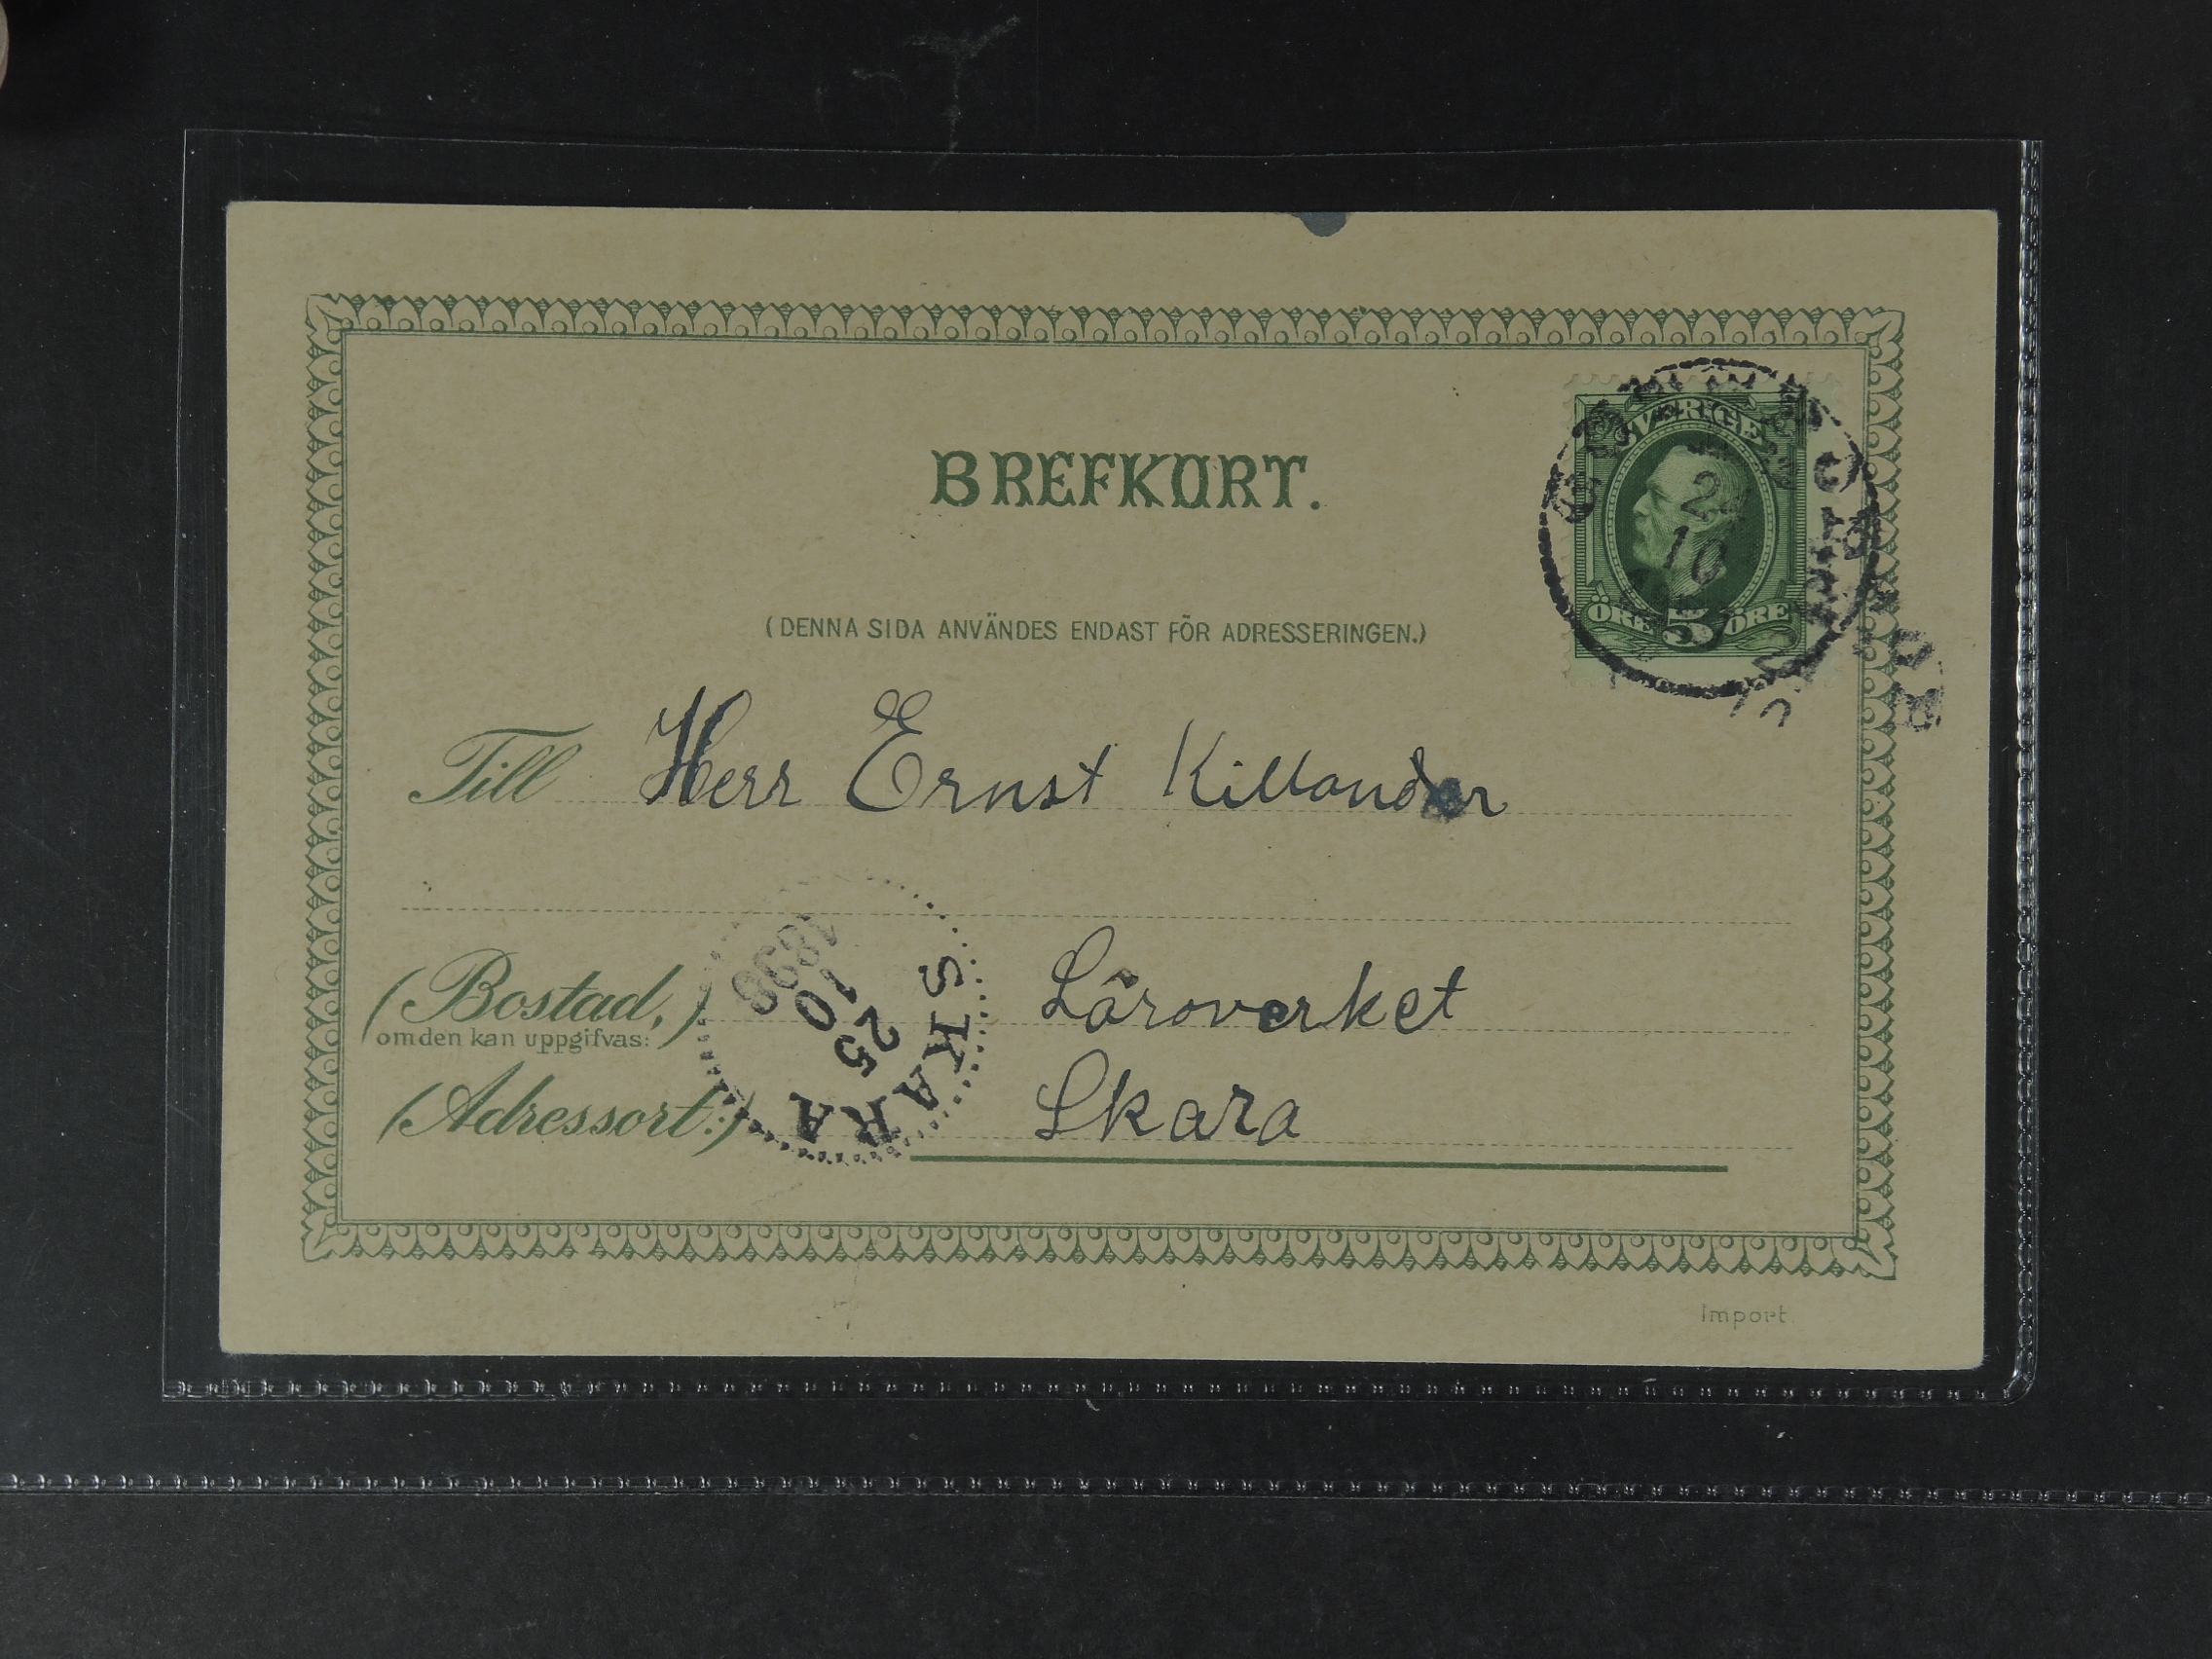 BREFKORT.
SVERIGE
ÖRE 5 ÖRE
(DENNA SIDA ANVÄNDES ENDAST FÖR ADRESSERINGEN.)
Till Herr Ernst Killander
(Bostad,) Läroverket
om den kan uppgifvas:
(Adressort:) Skara
SKARA
25
10
Import.